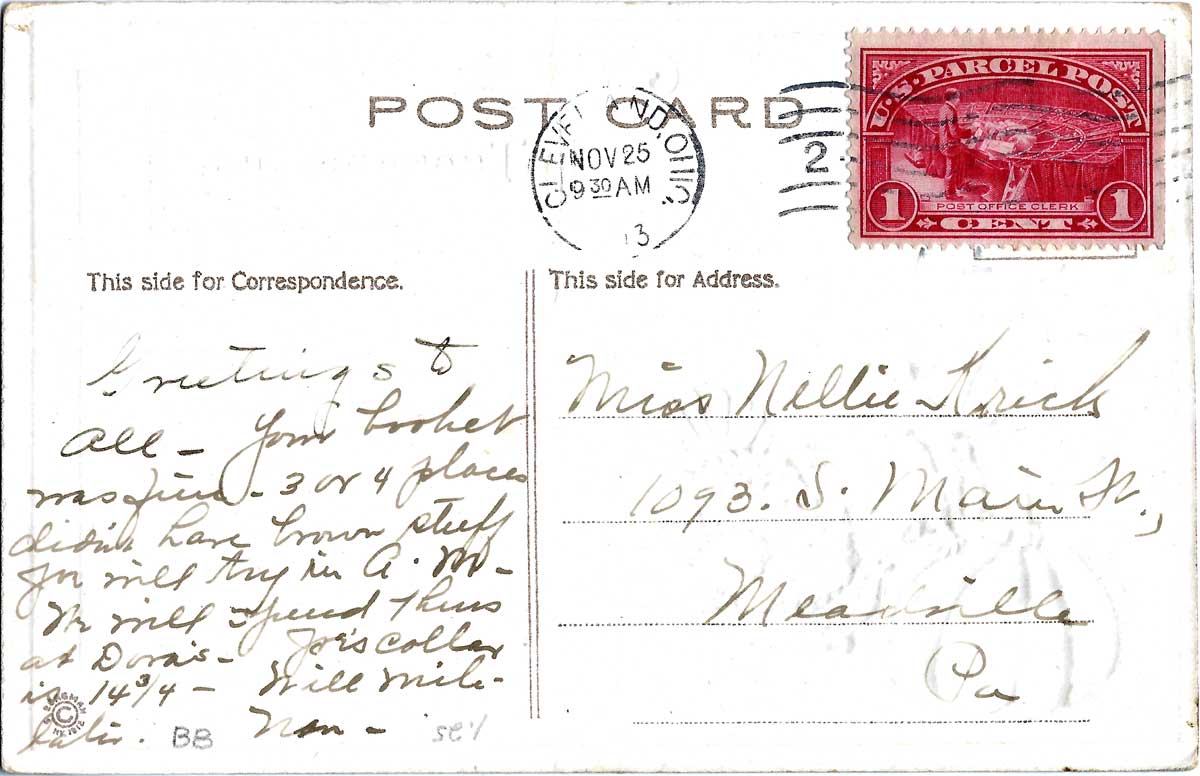 POST CARD
CLEVELAND, OHIO.
NOV 25
9 30 AM
13
2
U.S. PARCEL POST
POST OFFICE CLERK
1 CENT 1
This side for Correspondence.
Greetings to
all - Your booket
was fine - 3 or 4 places
didn't have brown stuff
for will try in A. M -
We will spend Thurs
at Dora's - Joe's collar
is 14 3/4 - Will write
later. Nen -
BB
1.25
© BERGMAN N.Y. 1912
This side for Address.
Miss Nellie Krick
1093. S. Main St.,
Meadville
Pa